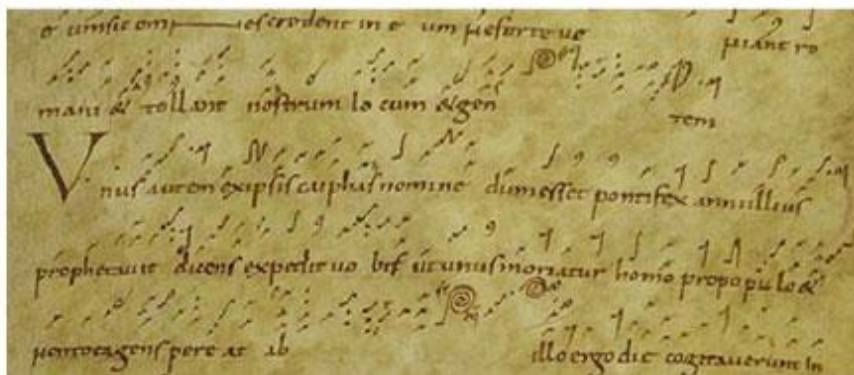 e eumsic omnes credent in e um neforte ue niant ro
mani & tollant nostrum locum & gen tem
Unus autem exipsis caiphas nomine dum esset pontifex anni illius
prophetavit dicens expedit vo bis ut unus moriatur homo pro populo &
non tota gens pere at ab illo ergo die cogitaverunt in